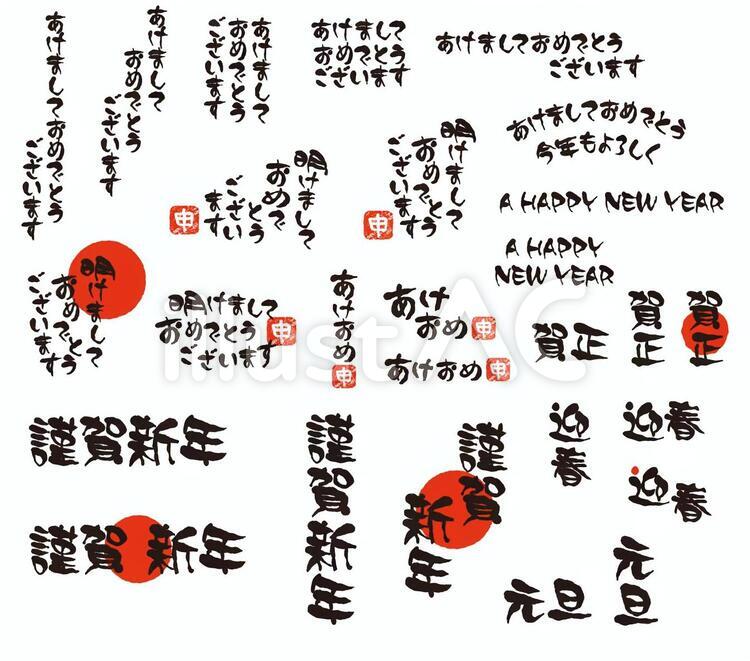 あけましておめでとう
ございます
あけまして
おめでとう
ございます
あけまして
おめでとう
ございます
あけまして
おめでとう
ございます
あけましておめでとう
ございます
あけましておめでとう
今年もよろしく
明けまして
おめで
とう
ござい
ます
申
明けまして
おめでとう
ございます
申
A HAPPY NEW YEAR
A HAPPY
NEW YEAR
明けまして
おめでとう
ございます
明けまして
おめでとう
ございます
申
あけおめ
申
あけ
おめ
申
あけおめ
申
賀正
賀正
賀正
illustAC
謹賀新年
謹賀新年
謹賀新年
謹賀
新年
迎春
迎春
迎春
元旦
元旦